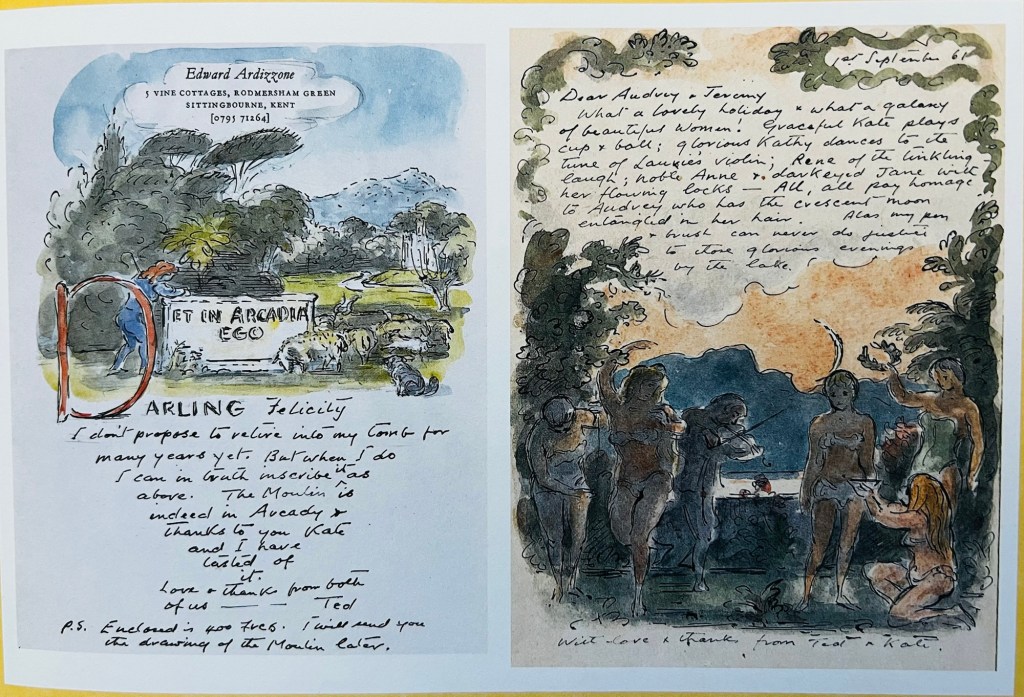 Edward Ardizzone
5 VINE COTTAGES, RODMERSHAM GREEN
SITTINGBOURNE, KENT
[0795 71264]
ET IN ARCADIA
EGO
DARLING Felicity
I don't propose to retire into my tomb for
many years yet. But when I do
I can in truth inscribe it as
above. The Moulin is
indeed in Arcady &
thanks to you Kate
and I have
tasted of
it.
Love & thanks from both
of us — — Ted
P.S. Enclosed is 400 frcs. I will send you
the drawing of the Moulin later.
1st September 61
Dear Audrey & Jeremy
What a lovely holiday & what a galaxy
of beautiful women! Graceful Kate plays
cup & ball; glorious Kathy dances to the
tune of Laurie's violin; Rene of the tinkling
laugh; noble Anne & dark eyed Jane with
her flowing locks — All, all pay homage
to Audrey who has the crescent moon
entangled in her hair. Alas my pen
& brush can never do justice
to those glorious evenings
by the lake.
With love & thanks from Ted & Kate.